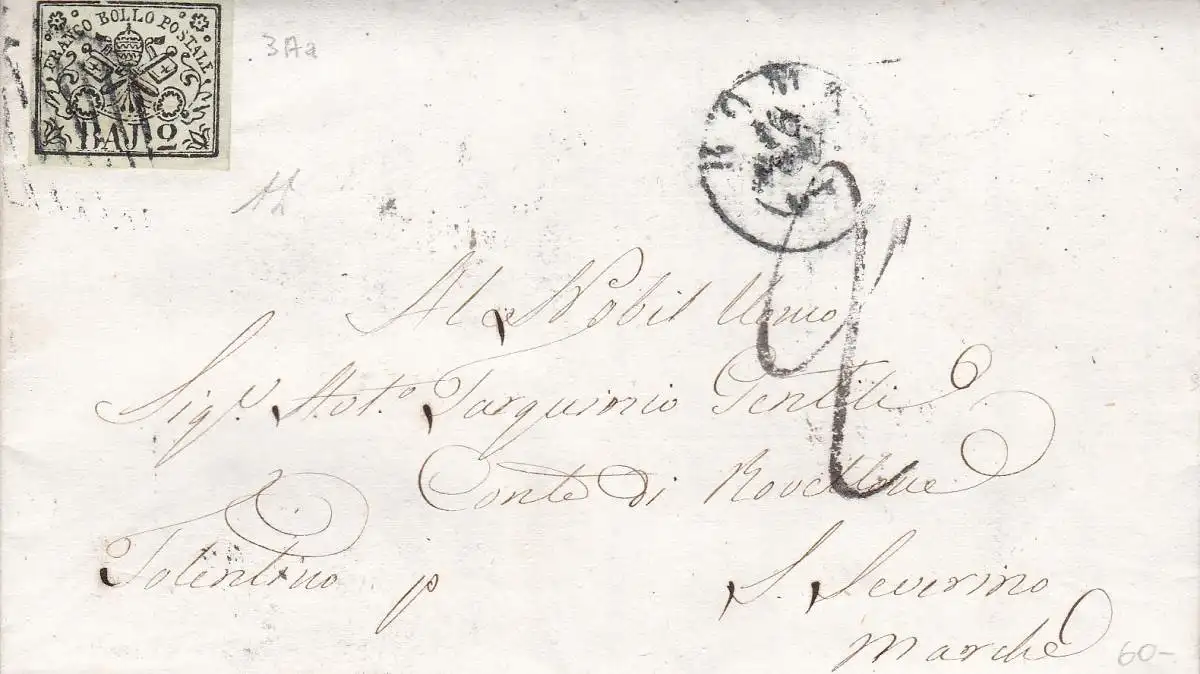 FRANCO BOLLO POSTALE
BAJ 2
3Aa
ROMA
Al Nobil Uomo
Sigr. Tarquinio Gentili
Conte di Rovellone
Tolentino p S. Severino
Marche
60-